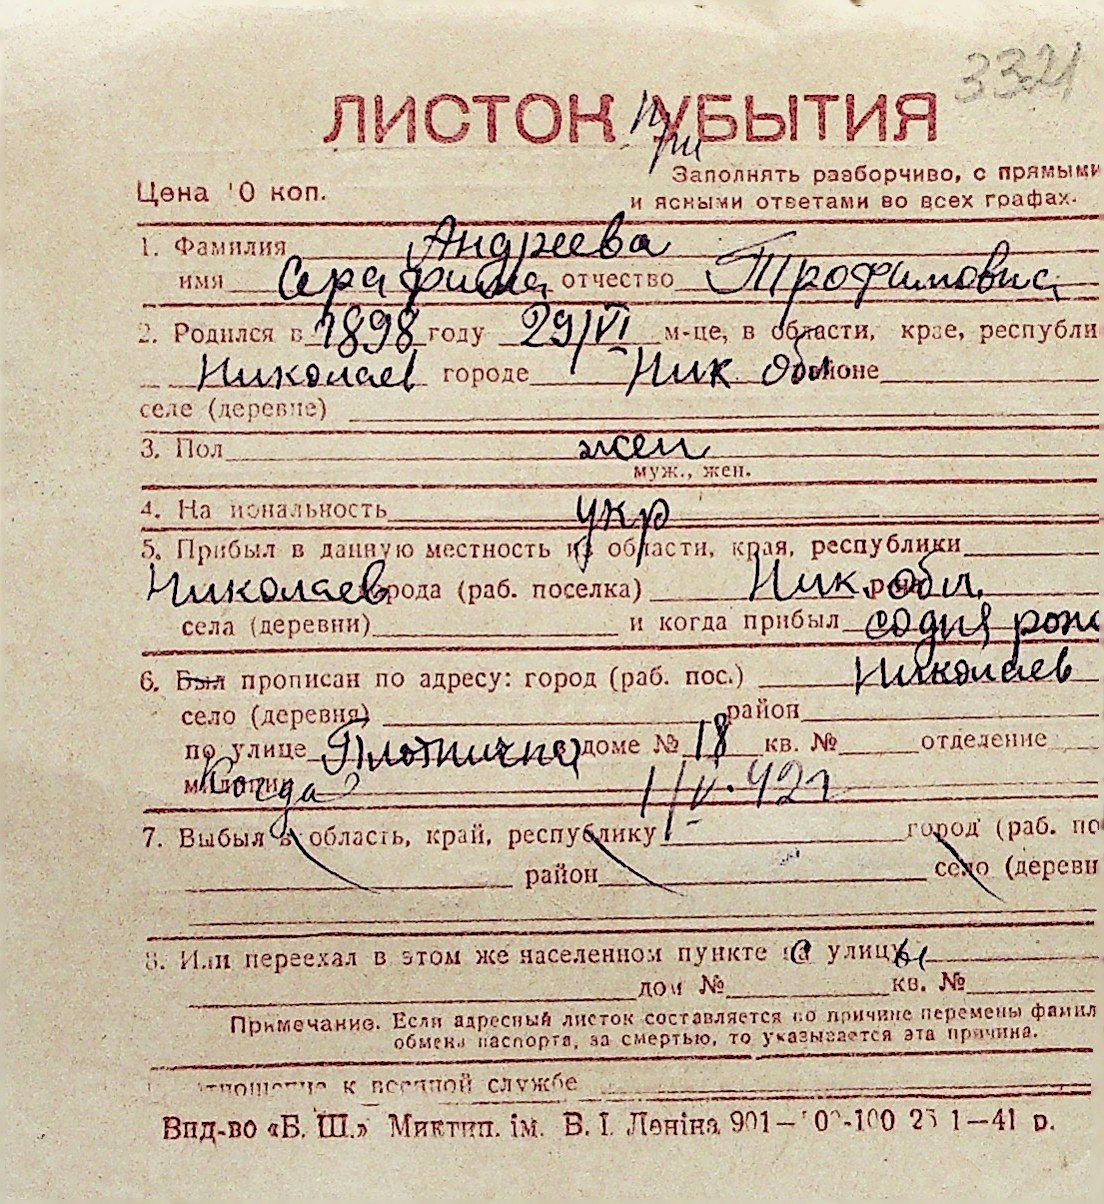 3321
ЛИСТОК УБЫТИЯ
При
Цена 10 коп.
Заполнять разборчиво, с прямыми
и ясными ответами во всех графах.
1. Фамилия Андреева
имя Серафима отчество Трофимовна
2. Родился в 1898 году 29/VI м-це, в области, крае, республи
Николаев городе Ник обл районе
селе (деревне)
3. Пол жен
муж., жен.
4. На иональность укр
5. Прибыл в данную местность из области, края, республики
Николаев города (раб. поселка) Ник. обл. рона
села (деревни) и когда прибыл со дня рож
6. Был прописан по адресу: город (раб. пос.) Николаев
село (деревня) район
по улице Плотнична доме № 18 кв. № отделение
милиции Когда 1/V·42г
7. Выбыл в область, край, республику город (раб. по
район село (деревн
8. Или переехал в этом же населенном пункте са улицы
дом № кв. №
Примечание. Если адресный листок составляется по причине перемены фамил
обмена паспорта, за смертью, то указывается эта причина.
отношение к военной службе
Вид-во «Б. Ш.» Миктип. ім. В. І. Леніна 901— 00-100 25 1—41 р.